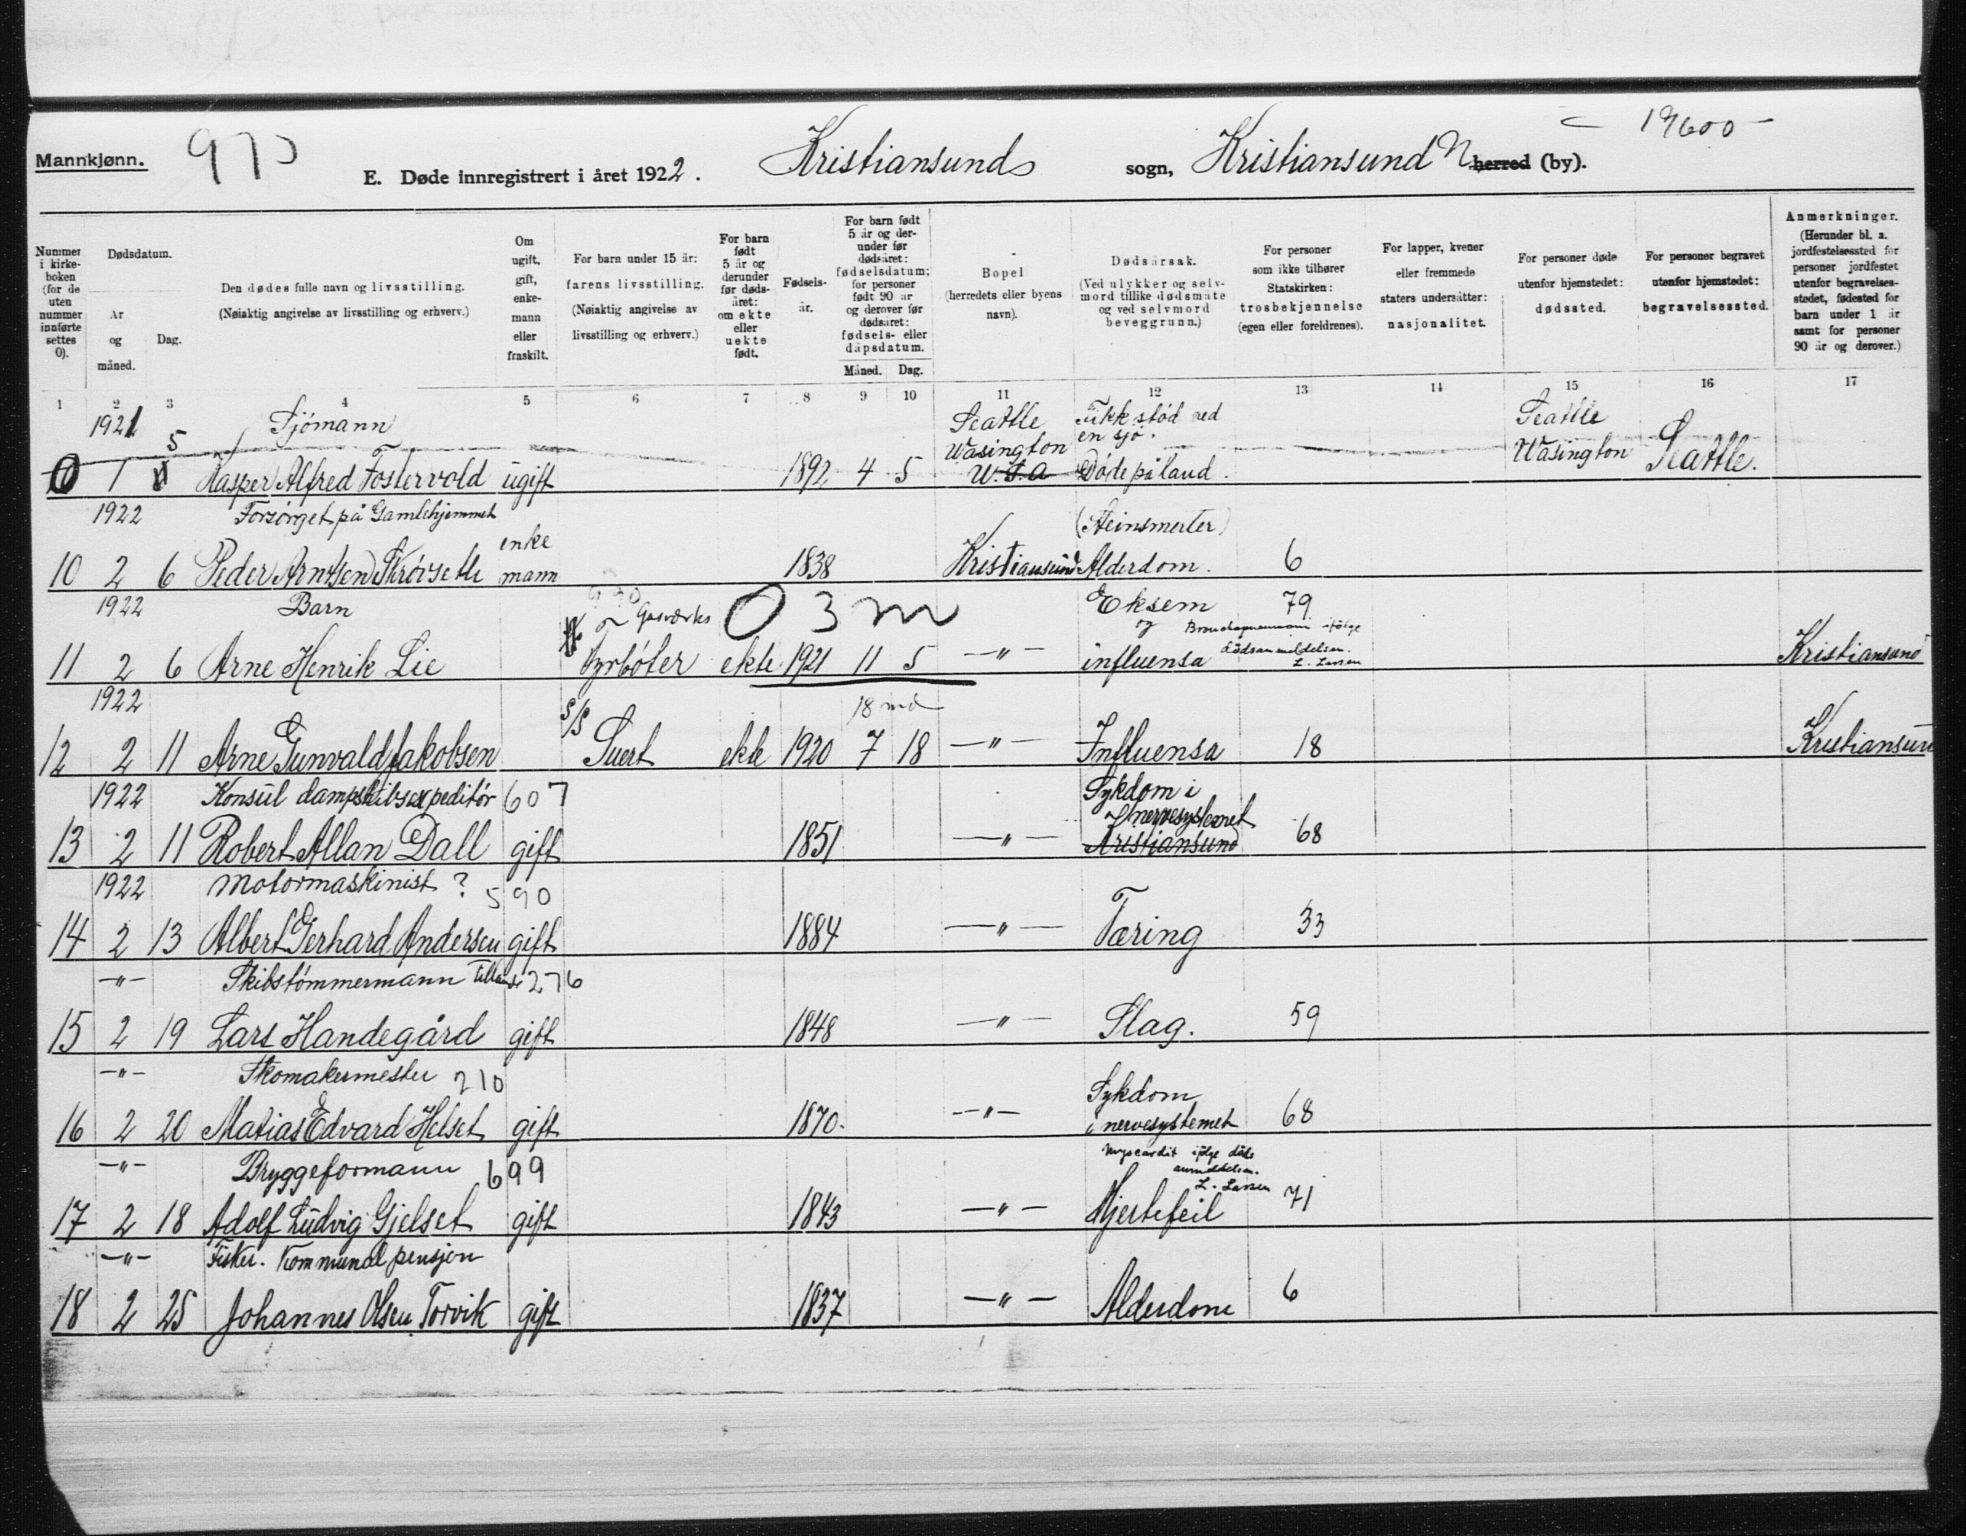 Mannkjønn.
E. Døde innregistrert i året 1922. Kristiansunds sogn, Kristiansund N herred (by).
19600
Nummer i kirkeboken (for de uten nummer innførte settes 0).
Dødsdatum.
År og måned.
Dag.
Den dødes fulle navn og livsstilling.
(Nøiaktig angivelse av livsstilling og erhverv.)
Om ugift, gift, enkemann eller fraskilt.
For barn under 15 år: farens livsstilling.
(Nøiaktig angivelse av livsstilling og erhverv.)
For barn født 5 år og derunder før dødsåret: om ekte eller uekte født.
Fødselsår.
For barn født 5 år og derunder før dødsåret: fødselsdatum; for personer født 90 år og derover før dødsåret: fødsels- eller dåpsdatum.
Måned. Dag.
Bopel
(herredets eller byens navn).
Dødsårsak.
(Ved ulykker og selvmord tillike dødsmåte og ved selvmord beveggrunn.)
For personer som ikke tilhører Statskirken: trosbekjennelse (egen eller foreldrenes).
For lapper, kvener eller fremmede staters undersåtter: nasjonalitet.
For personer døde utenfor hjemstedet: dødssted.
For personer begravet utenfor hjemstedet: begravelsessted.
Anmerkninger.
(Herunder bl. a. jordfestelsessted for personer jordfestet utenfor begravelsesstedet, fødested for barn under 1 år samt for personer 90 år og derover.)
1 2 3 4 5 6 7 8 9 10 11 12 13 14 15 16 17
1921 Sjömann Seattle Fikk stöd ved Seattle
5 Wasington en sjö. Wasington Seattle.
0 1 Kasper Alfred Fostervold ugift 1892 4 5 U.S.A Döde på land.
1922 Forsörget på Gamlehjemmet enke
10 2 6 Peder Arntsen Skrövseth mann 1838 Kristiansund Alderdom. 6
1922 Barn Gasverks 0 3 m Eksem 79
og ifölge
11 2 6 Arne Henrik Lie Fyrböter ekte 1921 11 5 —"— influensa dödsanmeldelsen. L. Larsen Kristiansund
1922 S/S 18 md
12 2 11 Arne Gunvald Jakobsen Stuert ekte 1920 7 18 —"— Influensa 18 Kristiansund
1922 Konsul dampskibsexpeditör 607 Sykdom i
nervesystemet
13 2 11 Robert Allan Dall gift 1851 —"— Kristiansund 68
1922 Motormaskinist ? 590
14 2 13 Albert Gerhard Andersen gift 1884 —"— Tæring 33
—"— Skibstömmermann 276
15 2 19 Lars Handegård gift 1848 —"— Slag. 59
—"— Skomakermester 210 Sykdom
16 2 20 Matias Edvard Helset gift 1870. —"— i nervesystemet 68
—"— Bryggeformann 699 Myocardit ifölge döds
anmeldelsen. L. Larsen
17 2 18 Adolf Ludvig Gjelset gift 1843 —"— Hjertefeil 71
—"— Fisker. Kommunal pensjon
18 2 25 Johannes Olsen Torvik gift 1837 —"— Alderdom 6